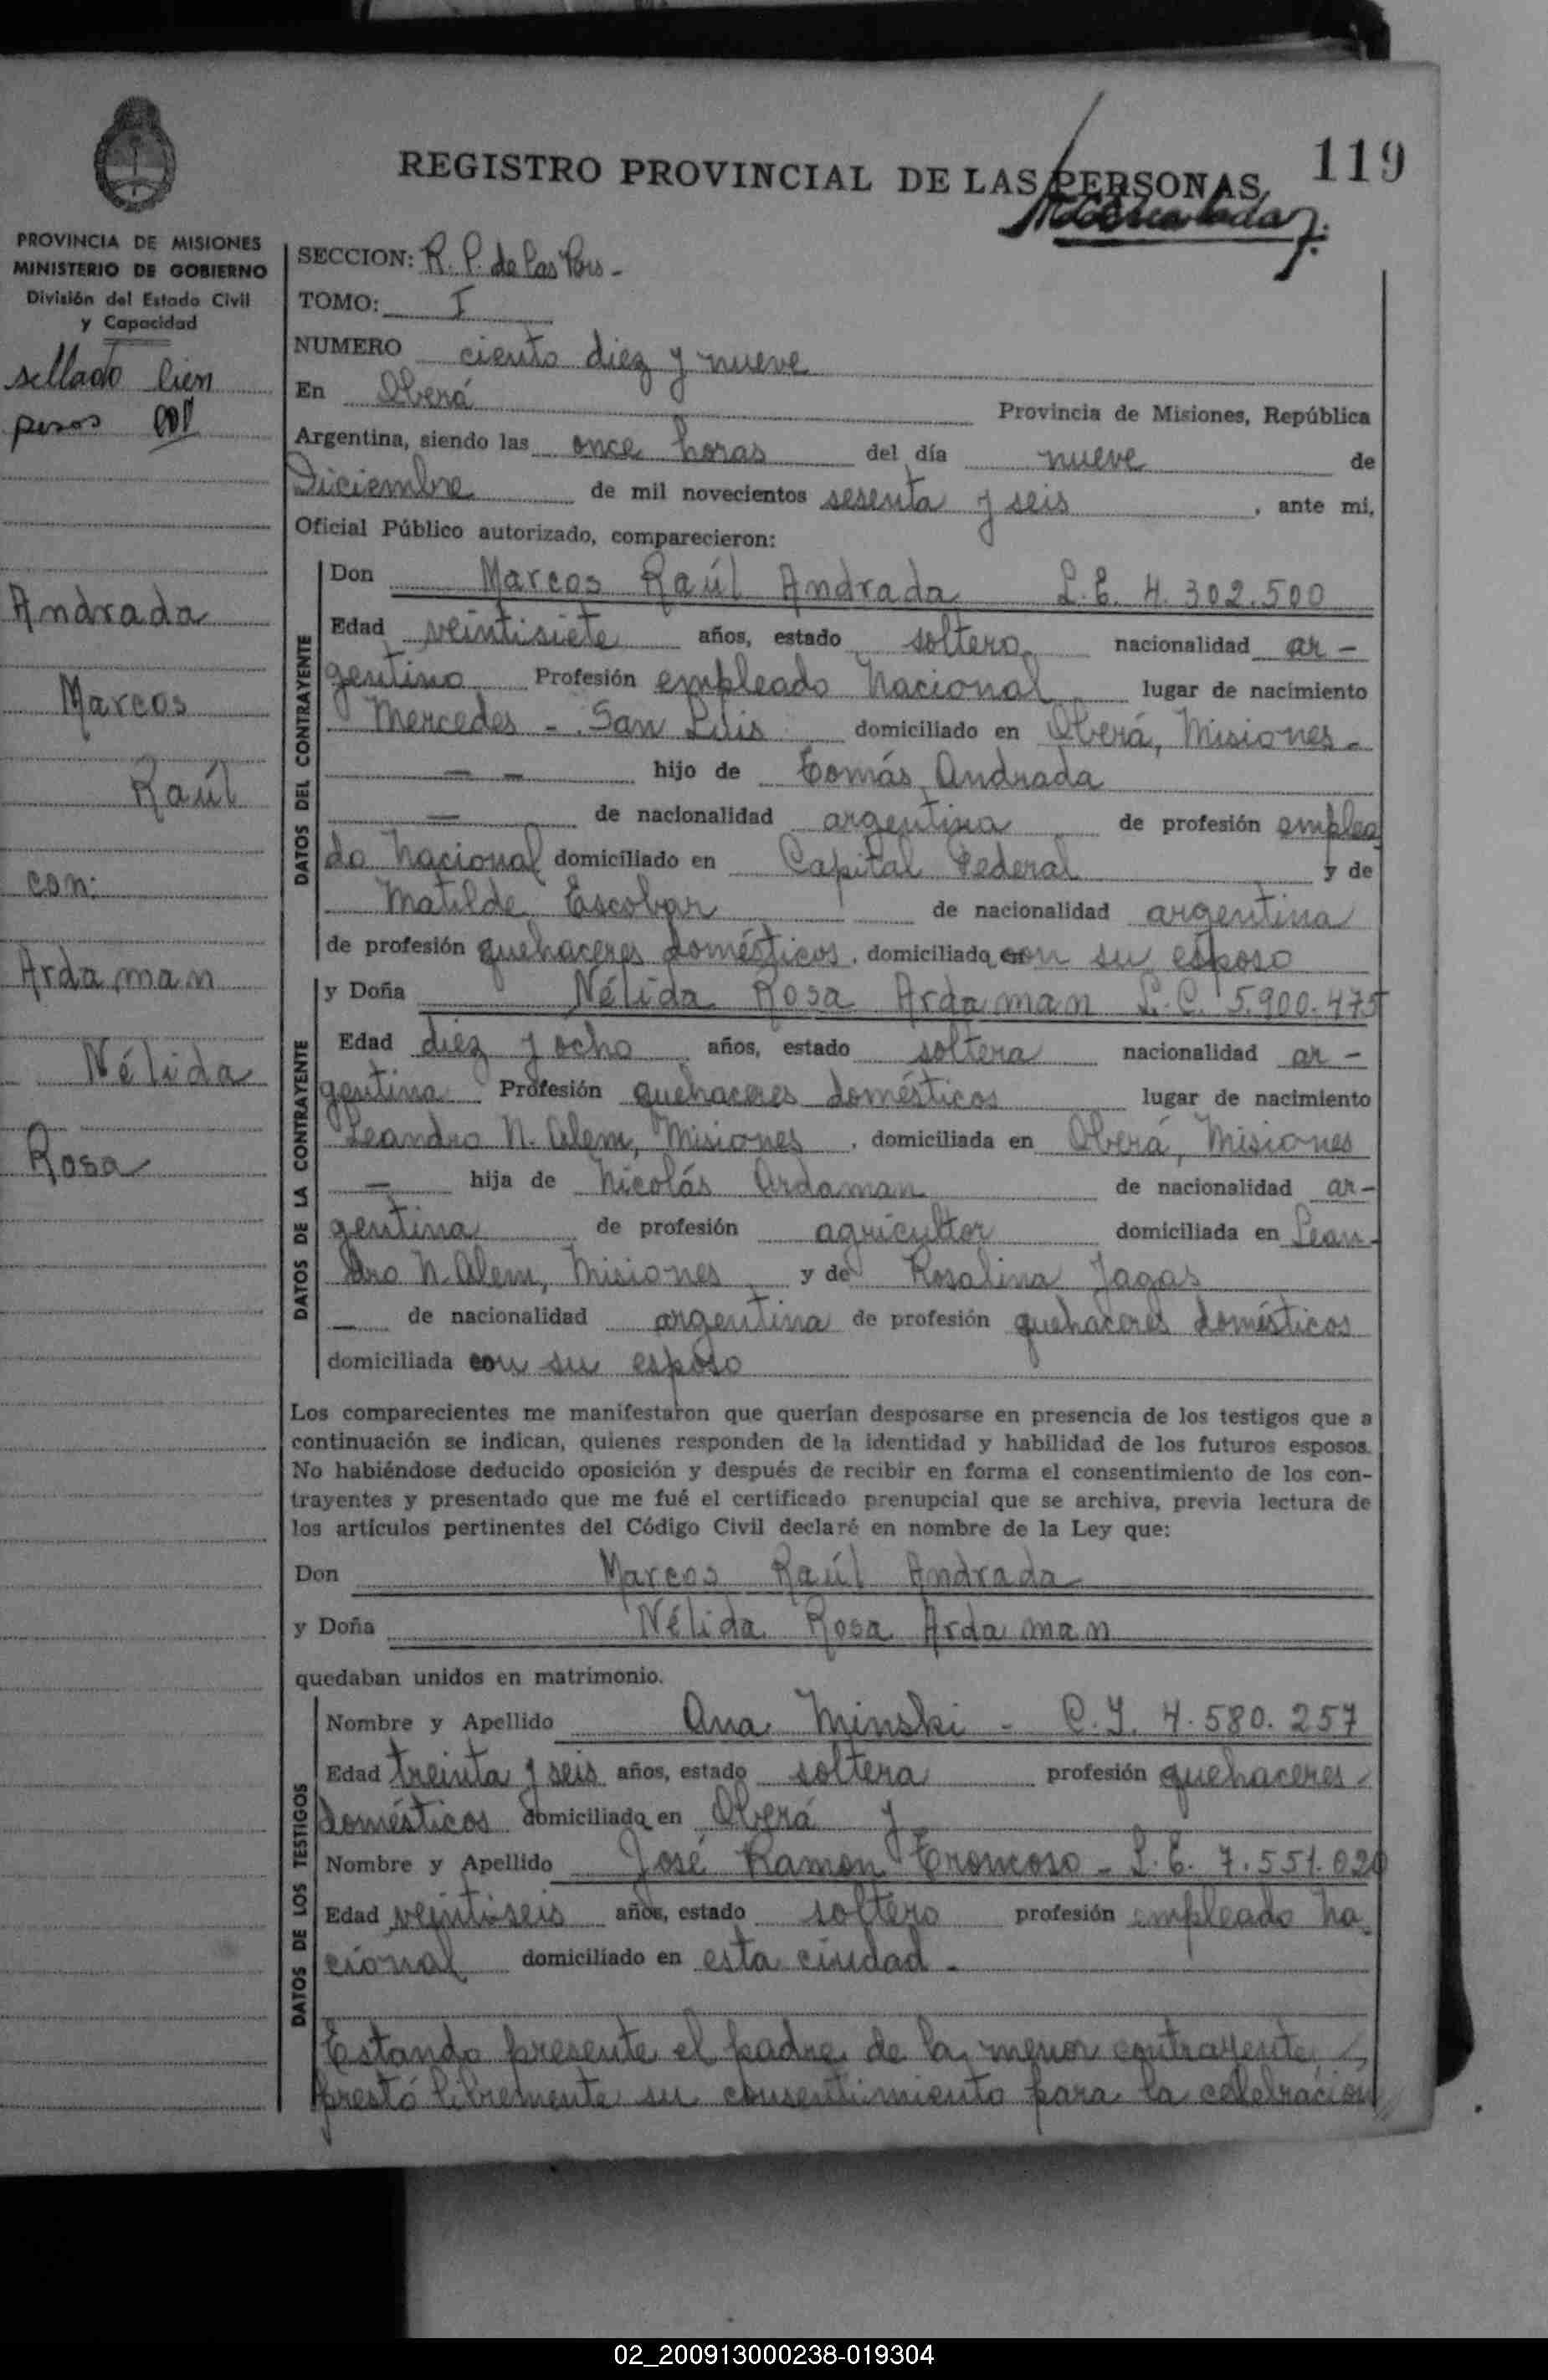 119
REGISTRO PROVINCIAL DE LAS PERSONAS
PROVINCIA DE MISIONES
MINISTERIO DE GOBIERNO
División del Estado Civil
y Capacidad
sellado cien
pesos
Andrada
Marcos
Raúl
con:
Ardaman
Nélida
Rosa
SECCION: R. P. de las Pers -
TOMO: I
NUMERO ciento diez y nueve
En Oberá Provincia de Misiones, República
Argentina, siendo las once horas del día nueve de
Diciembre de mil novecientos sesenta y seis, ante mi,
Oficial Público autorizado, comparecieron:
DATOS DEL CONTRAYENTE
Don Marcos Raúl Andrada L.E. 4.302.500
Edad veintisiete años, estado soltero nacionalidad ar-
gentino Profesión empleado Nacional lugar de nacimiento
Mercedes - San Luis domiciliado en Oberá, Misiones -
- - hijo de Tomás Andrada
- de nacionalidad argentina de profesión emplea
do Nacional domiciliado en Capital Federal y de
Matilde Escobar de nacionalidad argentina
de profesión quehaceres domésticos, domiciliada con su esposo
DATOS DE LA CONTRAYENTE
y Doña Nélida Rosa Ardaman L.C. 5.900.475
Edad diez y ocho años, estado soltera nacionalidad ar-
gentina Profesión quehaceres domésticos lugar de nacimiento
Leandro N. Alem, Misiones, domiciliada en Oberá, Misiones
- hija de Nicolás Ardaman de nacionalidad ar-
gentina de profesión agricultor domiciliada en Lean-
dro N. Alem, Misiones y de Rosalina Jagas
- de nacionalidad argentina de profesión quehaceres domésticos
domiciliada con su esposo
Los comparecientes me manifestaron que querían desposarse en presencia de los testigos que a
continuación se indican, quienes responden de la identidad y habilidad de los futuros esposos.
No habiéndose deducido oposición y después de recibir en forma el consentimiento de los con-
trayentes y presentado que me fué el certificado prenupcial que se archiva, previa lectura de
los artículos pertinentes del Código Civil declaré en nombre de la Ley que:
Don Marcos Raúl Andrada
y Doña Nélida Rosa Ardaman
quedaban unidos en matrimonio.
DATOS DE LOS TESTIGOS
Nombre y Apellido Ana Minski - C.I. 4.580.257
Edad treinta y seis años, estado soltera profesión quehaceres
domésticos domiciliada en Oberá y
Nombre y Apellido José Ramon Troncoso - L.E. 7.551.020
Edad veintiseis años, estado soltero profesión empleado Na
cional domiciliado en esta ciudad -
Estando presente el padre de la menor contrayente
prestó libremente su consentimiento para la celebración
02_200913000238-019304